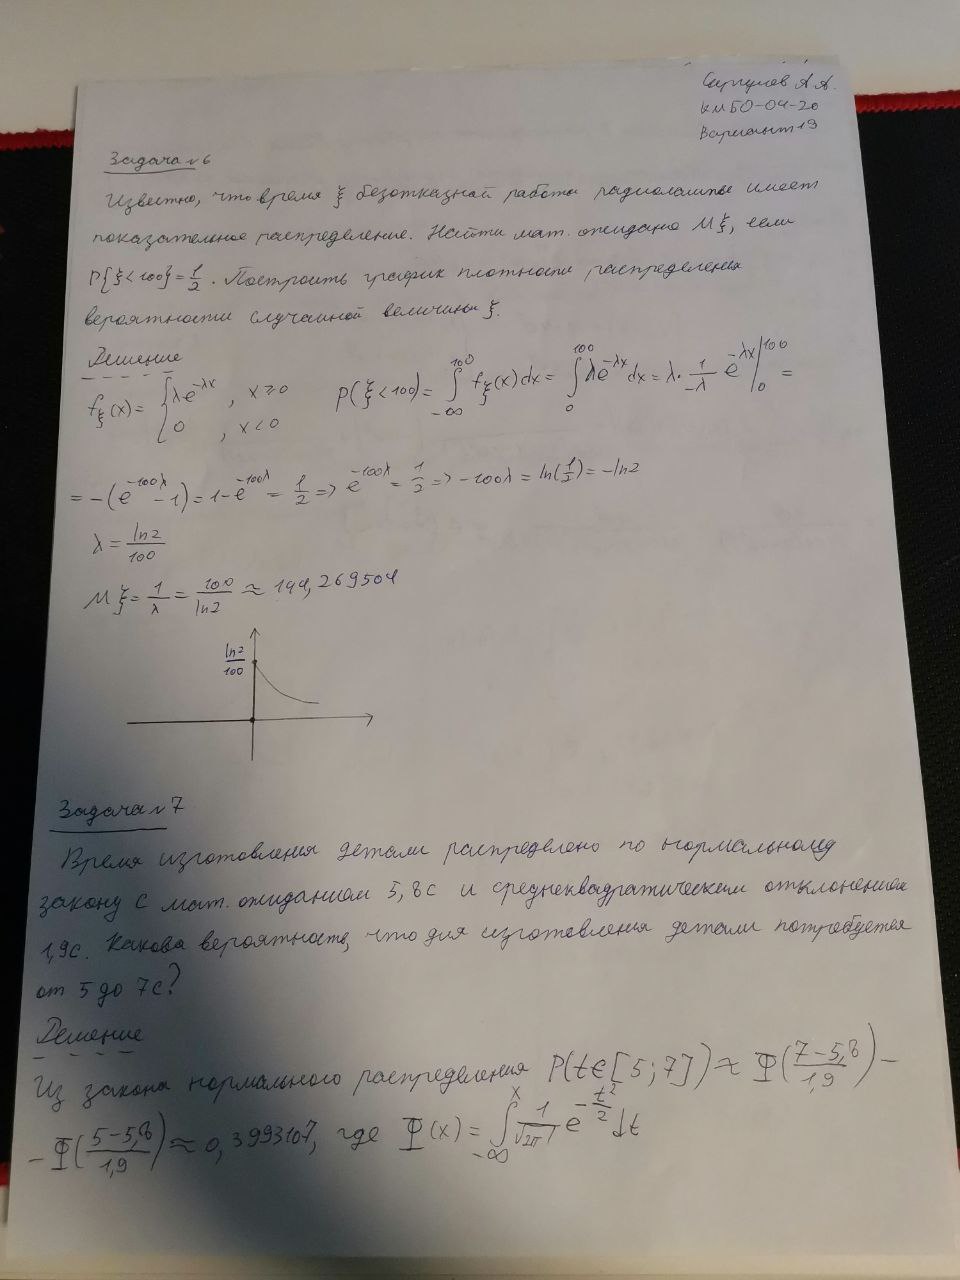 Сергулев А А.
КМБО-04-20
Вариант 19
Задача №6
Известно, что время ξ безотказной работы радиолампы имеет
показательное распределение. Найти мат. ожидание Mξ, если
P{ξ<100}=1/2. Построить график плотности распределения
вероятности случайной величины ξ.
Решение
f_ξ(x)={λe^{-λx}, x≥0; 0, x<0   P(ξ<100)=∫_{-∞}^{100} f_ξ(x)dx=∫_0^{100} λe^{-λx}dx=λ·1/-λ e^{-λx}|_0^{100}=
=-(e^{-100λ}-1)=1-e^{-100λ}=1/2=>e^{-100λ}=1/2=>-100λ=ln(1/2)=-ln2
λ=ln2/100
Mξ=1/λ=100/ln2≈144,269504
ln2/100
Задача №7
Время изготовления детали распределено по нормальному
закону с мат. ожиданием 5,8с и среднеквадратическим отклонением
1,9с. Какова вероятность, что для изготовления детали потребуется
от 5 до 7с?
Решение
Из закона нормального распределения P(t∈[5;7])≈Φ(7-5,8/1,9)-
-Φ(5-5,8/1,9)≈0,3993107, где Φ(x)=∫_{-∞}^x 1/√2π e^{-t²/2}dt